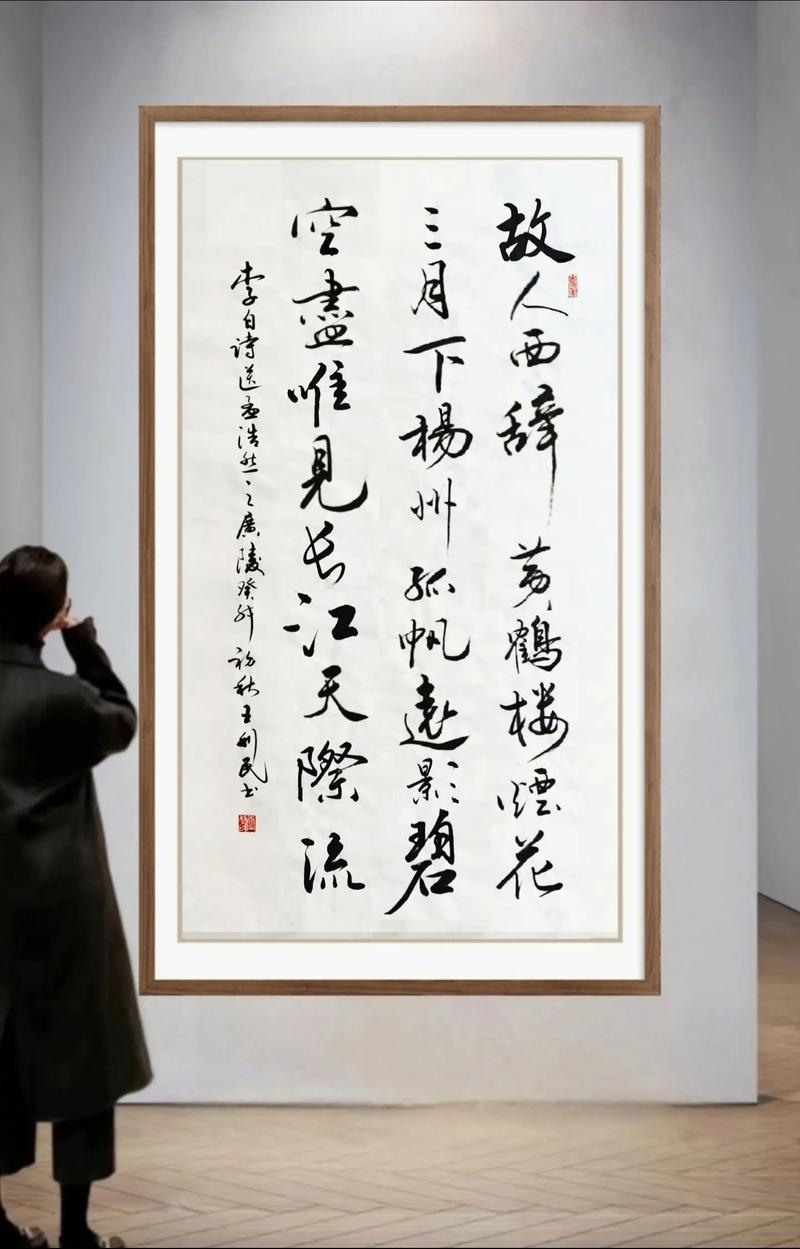 故人西辞黄鶴楼煙花
三月下楊州孤帆遠影碧
空盡唯見长江天際流
李白诗送孟浩然之廣陵癸卯初秋王利民书